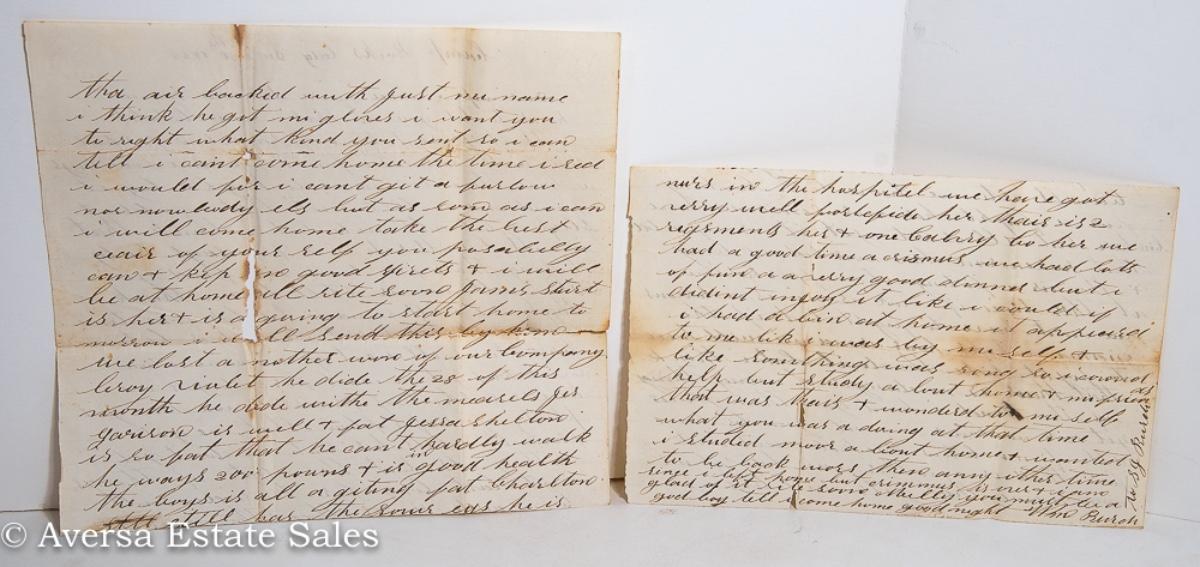 tha air backed with just mi name
i think he got mi gloves i want you
to right what kind you sent so i can
tell i cant come home the time i sed
i would for i cant git a furlow
nor nowbody els but as soon as i can
i will come home take the best
ceair of your self you posabelly
can + kep in good spirets + i will
be at home all rite soon James sturt
is her + is a going to start home to
morrow i will send this by him
we lost a nother won of our Company
leroy he dide the 28 of this
month he dide withe the meacels
garison is well + fat Jessa Shelton
is so fat that he cant hardly walk
he ways 200 pouns + is in good health
the boys is all a giting fat Charlton
still has the sour eys he is
nurs in the hospitel we have got
verry well her thair is 2
regements her + one Cabery to her we
had a good time a crismus we had lots
of fun a a verry good dinner but i
didint injoy it like i would if
i had a bin at home it appeared
to me lik i was by mi self +
like something was rong so i coward
help but study a bout home + mi friends
that was thair + wonderd to mi self
what you was a doing at that time
i studed moor a bout home + wanted
to be back wors then anny other time
since i left home but crismus is over i am
glad of it Mulky you must be a
god boy tell i come home good night Wm Burch
To S J Burch
© Aversa Estate Sales